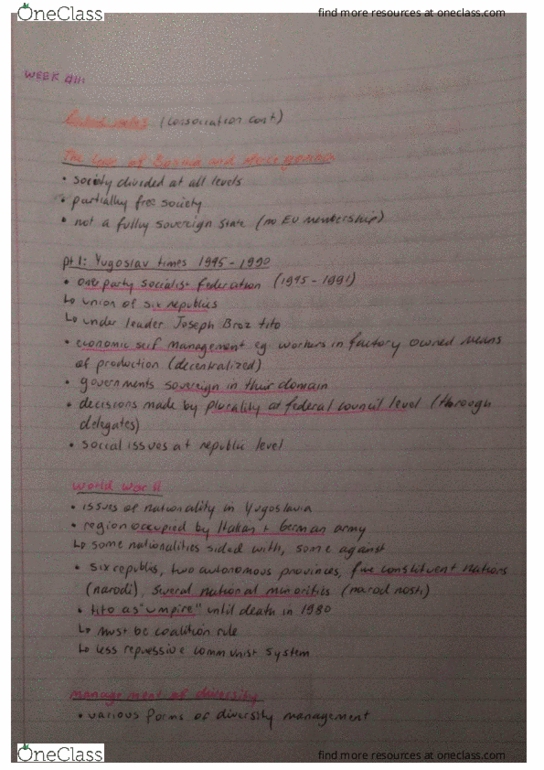 OneClass
find more resources at oneclass.com
WEEK #111
(consociation cont)
The case of Bosnia and Herzegovina
• society divided at all levels
• partially free society
• not a fully sovereign state (no EU membership)
pt 1: Yugoslav times 1945-1990
• one party socialist federation (1945-1991)
↳ union of six republics
↳ under leader Joseph Broz tito
• economic self management eg workers in factory owned means
of production (decentralized)
• governments sovereign in their domain
• decisions made by plurality at federal council level (through
delegates)
• social issues at republic level
World War II
• issues of nationality in Yugoslavia
• region occupied by Italian + German army
↳ some nationalities sided with, some against
• six republis, two autonomous provinces, five constituent nations
(narodi), several national minorities (narod nosti)
• tito as "umpire" until death in 1980
↳ must be coalition rule
↳ less repressive communist system
management of diversity
• various forms of diversity management
OneClass
find more resources at oneclass.com